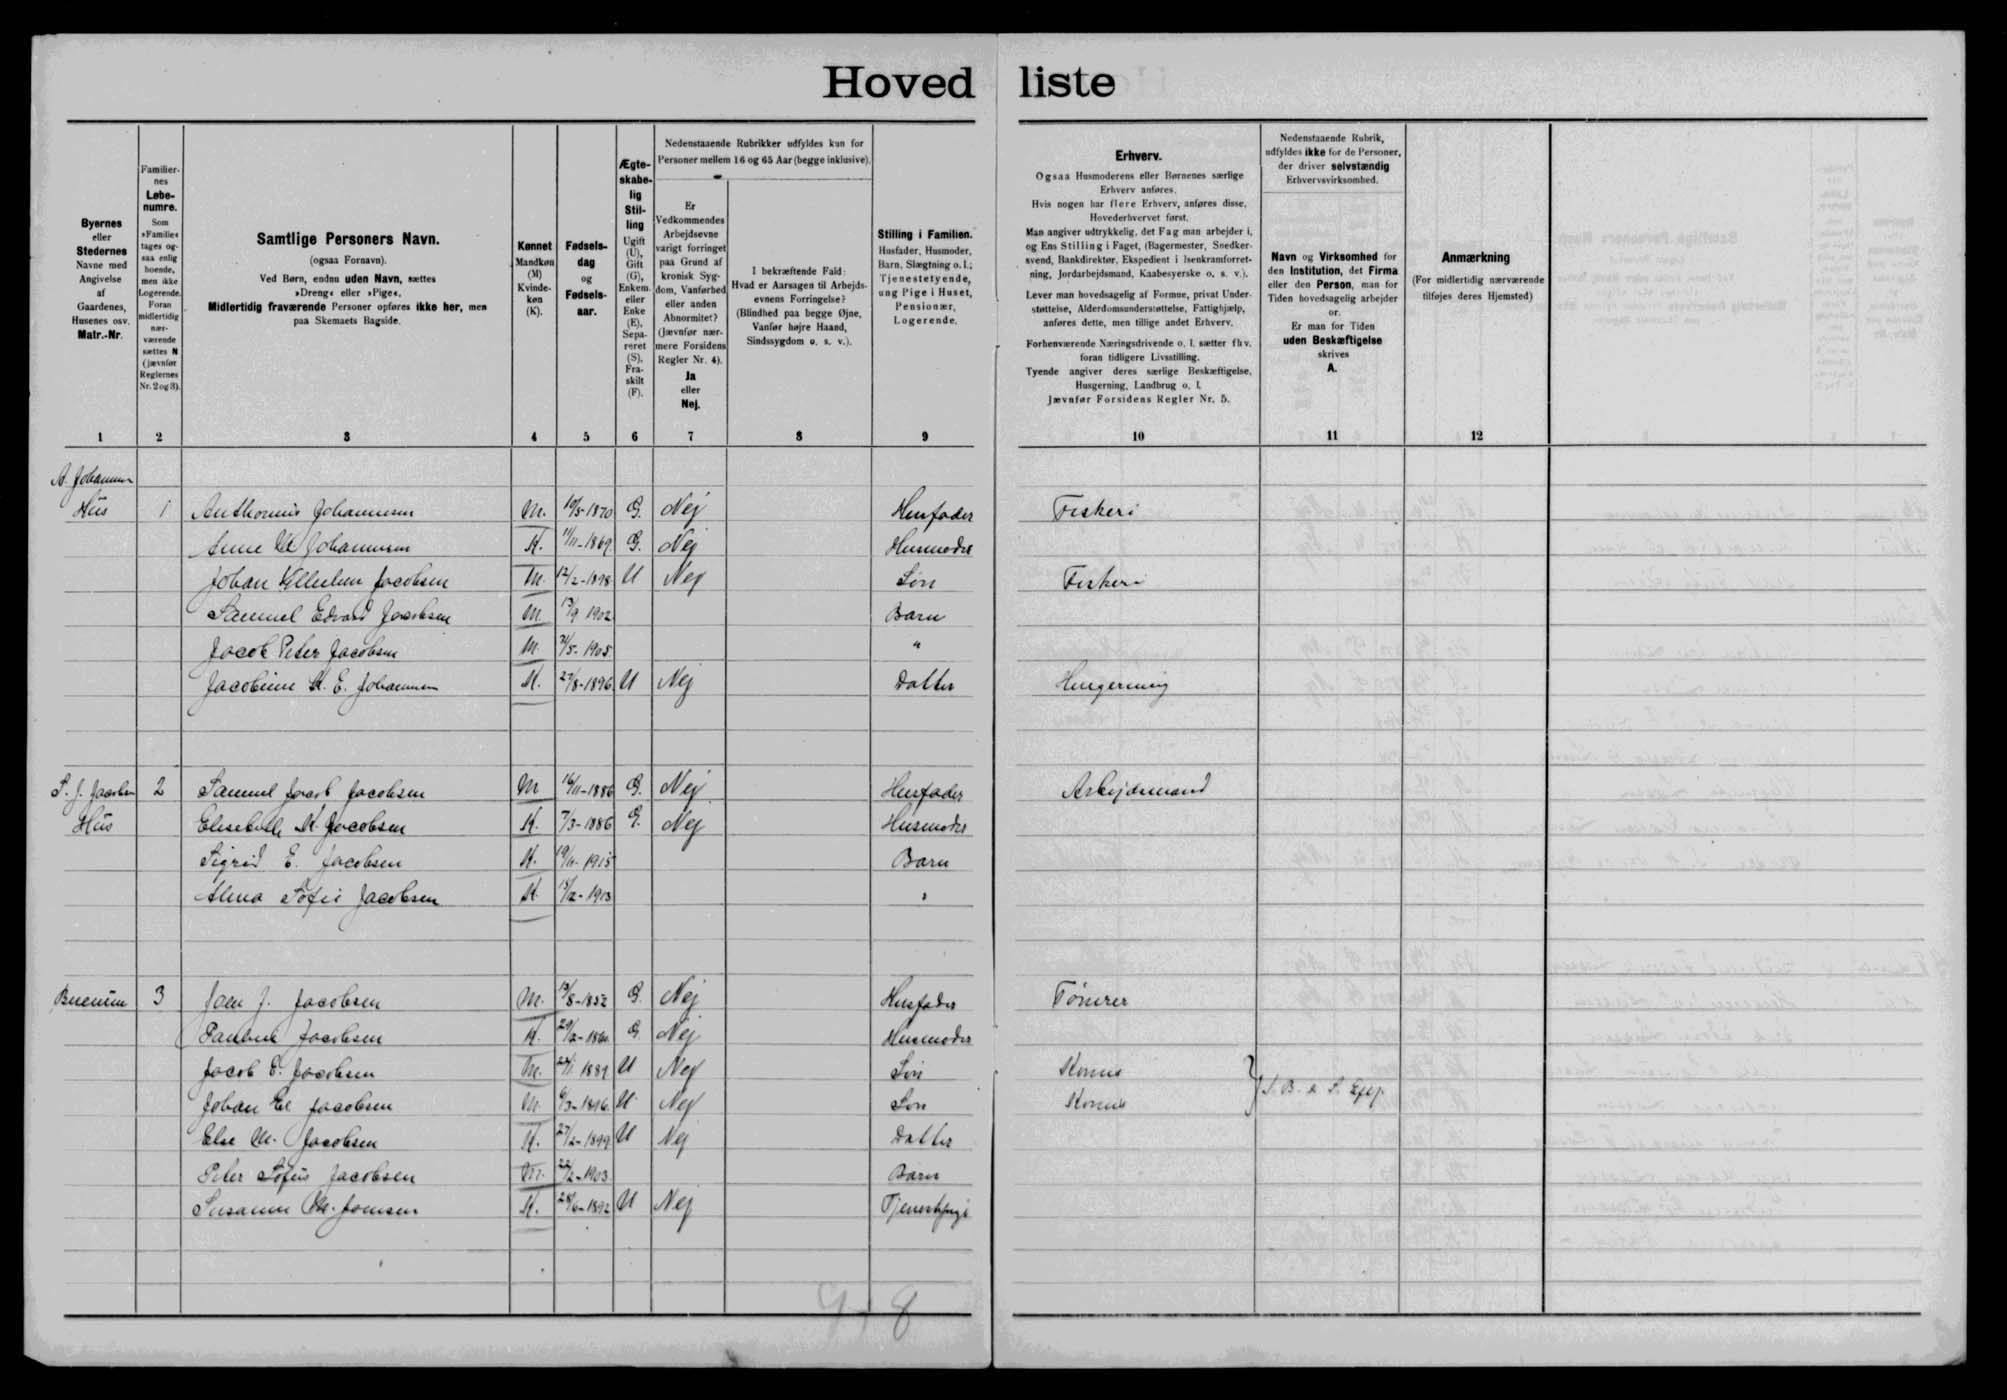 Hoved liste
Byernes
eller
Stedernes
Navne med
Angivelse
af
Gaardenes,
Husenes osv.
Matr.-Nr.
Familier-
nes
Løbe-
numre.
Som
»Familie«
tages og-
saa enlig
boende,
men ikke
Logerende.
Foran
midlertidig
nær-
værende
sættes N
(jævnfør
Reglernes
Nr. 2 og 3).
Samtlige Personers Navn.
(ogsaa Fornavn).
Ved Børn, endnu uden Navn, sættes
»Dreng« eller »Pige«.
Midlertidig fraværende Personer opføres ikke her, men
paa Skemaets Bagside.
Kønnet
Mandkøn
(M)
Kvinde-
køn
(K).
Fødsels-
dag
og
Fødsels-
aar.
Ægte-
skabe-
lig
Stil-
ling
Ugift
(U),
Gift
(G),
Enkem.
eller
Enke
(E),
Sepa-
reret
(S),
Fra-
skilt
(F).
Nedenstaaende Rubrikker udfyldes kun for
Personer mellem 16 og 65 Aar (begge inklusive).
Er
Vedkommendes
Arbejdsevne
varigt forringet
paa Grund af
kronisk Syg-
dom, Vanførhed
eller anden
Abnormitet?
(Jævnfør nær-
mere Forsidens
Regler Nr. 4).
Ja
eller
Nej.
I bekræftende Fald:
Hvad er Aarsagen til Arbejds-
evnens Forringelse?
(Blindhed paa begge Øjne,
Vanfør højre Haand,
Sindssygdom o. s. v.).
Stilling i Familien.
Husfader, Husmoder,
Barn, Slægtning o. l.;
Tjenestetyende,
ung Pige i Huset,
Pensionær,
Logerende.
Erhverv.
Ogsaa Husmoderens eller Børnenes særlige
Erhverv anføres.
Hvis nogen har flere Erhverv, anføres disse,
Hovederhvervet først.
Man angiver udtrykkelig, det Fag man arbejder i,
og Ens Stilling i Faget, (Bagermester, Snedker-
svend, Bankdirektør, Ekspedient i Isenkramforret-
ning, Jordarbejdsmand, Kaabesyerske o. s. v.).
Lever man hovedsagelig af Formue, privat Under-
støttelse, Alderdomsunderstøttelse, Fattighjælp,
anføres dette, men tillige andet Erhverv.
Forhenværende Næringsdrivende o. l. sætter fhv.
foran tidligere Livsstilling.
Tyende angiver deres særlige Beskæftigelse,
Husgerning, Landbrug o. l.
Jævnfør Forsidens Regler Nr. 5.
Nedenstaaende Rubrik,
udfyldes ikke for de Personer,
der driver selvstændig
Erhvervsvirksomhed.
Navn og Virksomhed for
den Institution, det Firma
eller den Person, man for
Tiden hovedsagelig arbejder
or.
Er man for Tiden
uden Beskæftigelse
skrives
A.
Anmærkning
(For midlertidig nærværende
tilføjes deres Hjemsted)
1 2 3 4 5 6 7 8 9 10 11 12
A. Johannesen
Hus 1 Anthonius Johannesen M. 19/5-1870 G. Nej Husfader Fiskeri
Anne M Johannesen K. 11/11-1869. G. Nej Husmoder
Johan Villiehm Jacobsen M. 12/2-1898. U Nej Søn Fiskeri
Samuel Edvard Jacobsen M. 13/9 1902 Barn
Jacob Peter Jacobsen M. 21/5-1905 "
Jacobine K. E. Johannesen K. 27/8-1896 U Nej Datter Husgerning
S. J. Jacobsen 2 Samuel Jacob Jacobsen M 16/11-1886 G. Nej Husfader Arbejdsmand
Hus Elisebeth M. Jacobsen K. 7/3-1886 G. Nej Husmoder
Sigrid E. Jacobsen K. 19/11-1915 Barn
Alma Sofie Jacobsen K. 18/2-1913 "
3 Joen J. Jacobsen M. 19/8-1852 G. Nej Husfader Tømrer
Jacobsen K. 29/2-1860. G. Nej Husmoder
Jacob E. Jacobsen M. 24/1 1889 U Nej Søn
Johan El Jacobsen M. 6/3-1896. U Nej Søn
Else M. Jacobsen K. 27/2-1899. U Nej Datter
Peter Sofus Jacobsen M. 22/2-1903. Barn
Susanne M. Joensen K. 28/6-1892 U Nej Tjenestepige
9 + 8